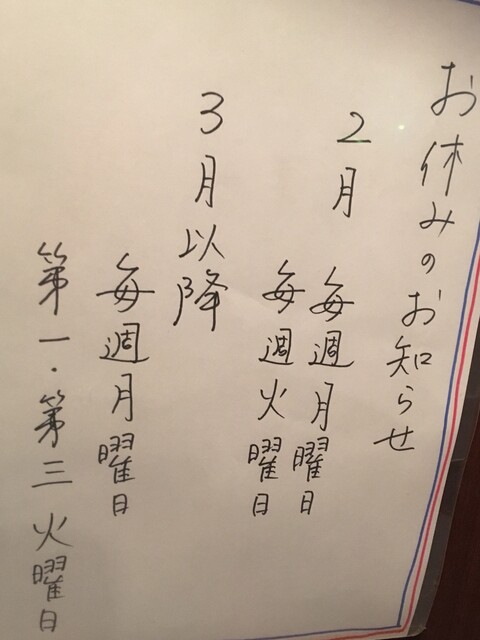 お休みのお知らせ
2月
毎週月曜日
毎週火曜日
3月以降
毎週月曜日
第一・第三火曜日